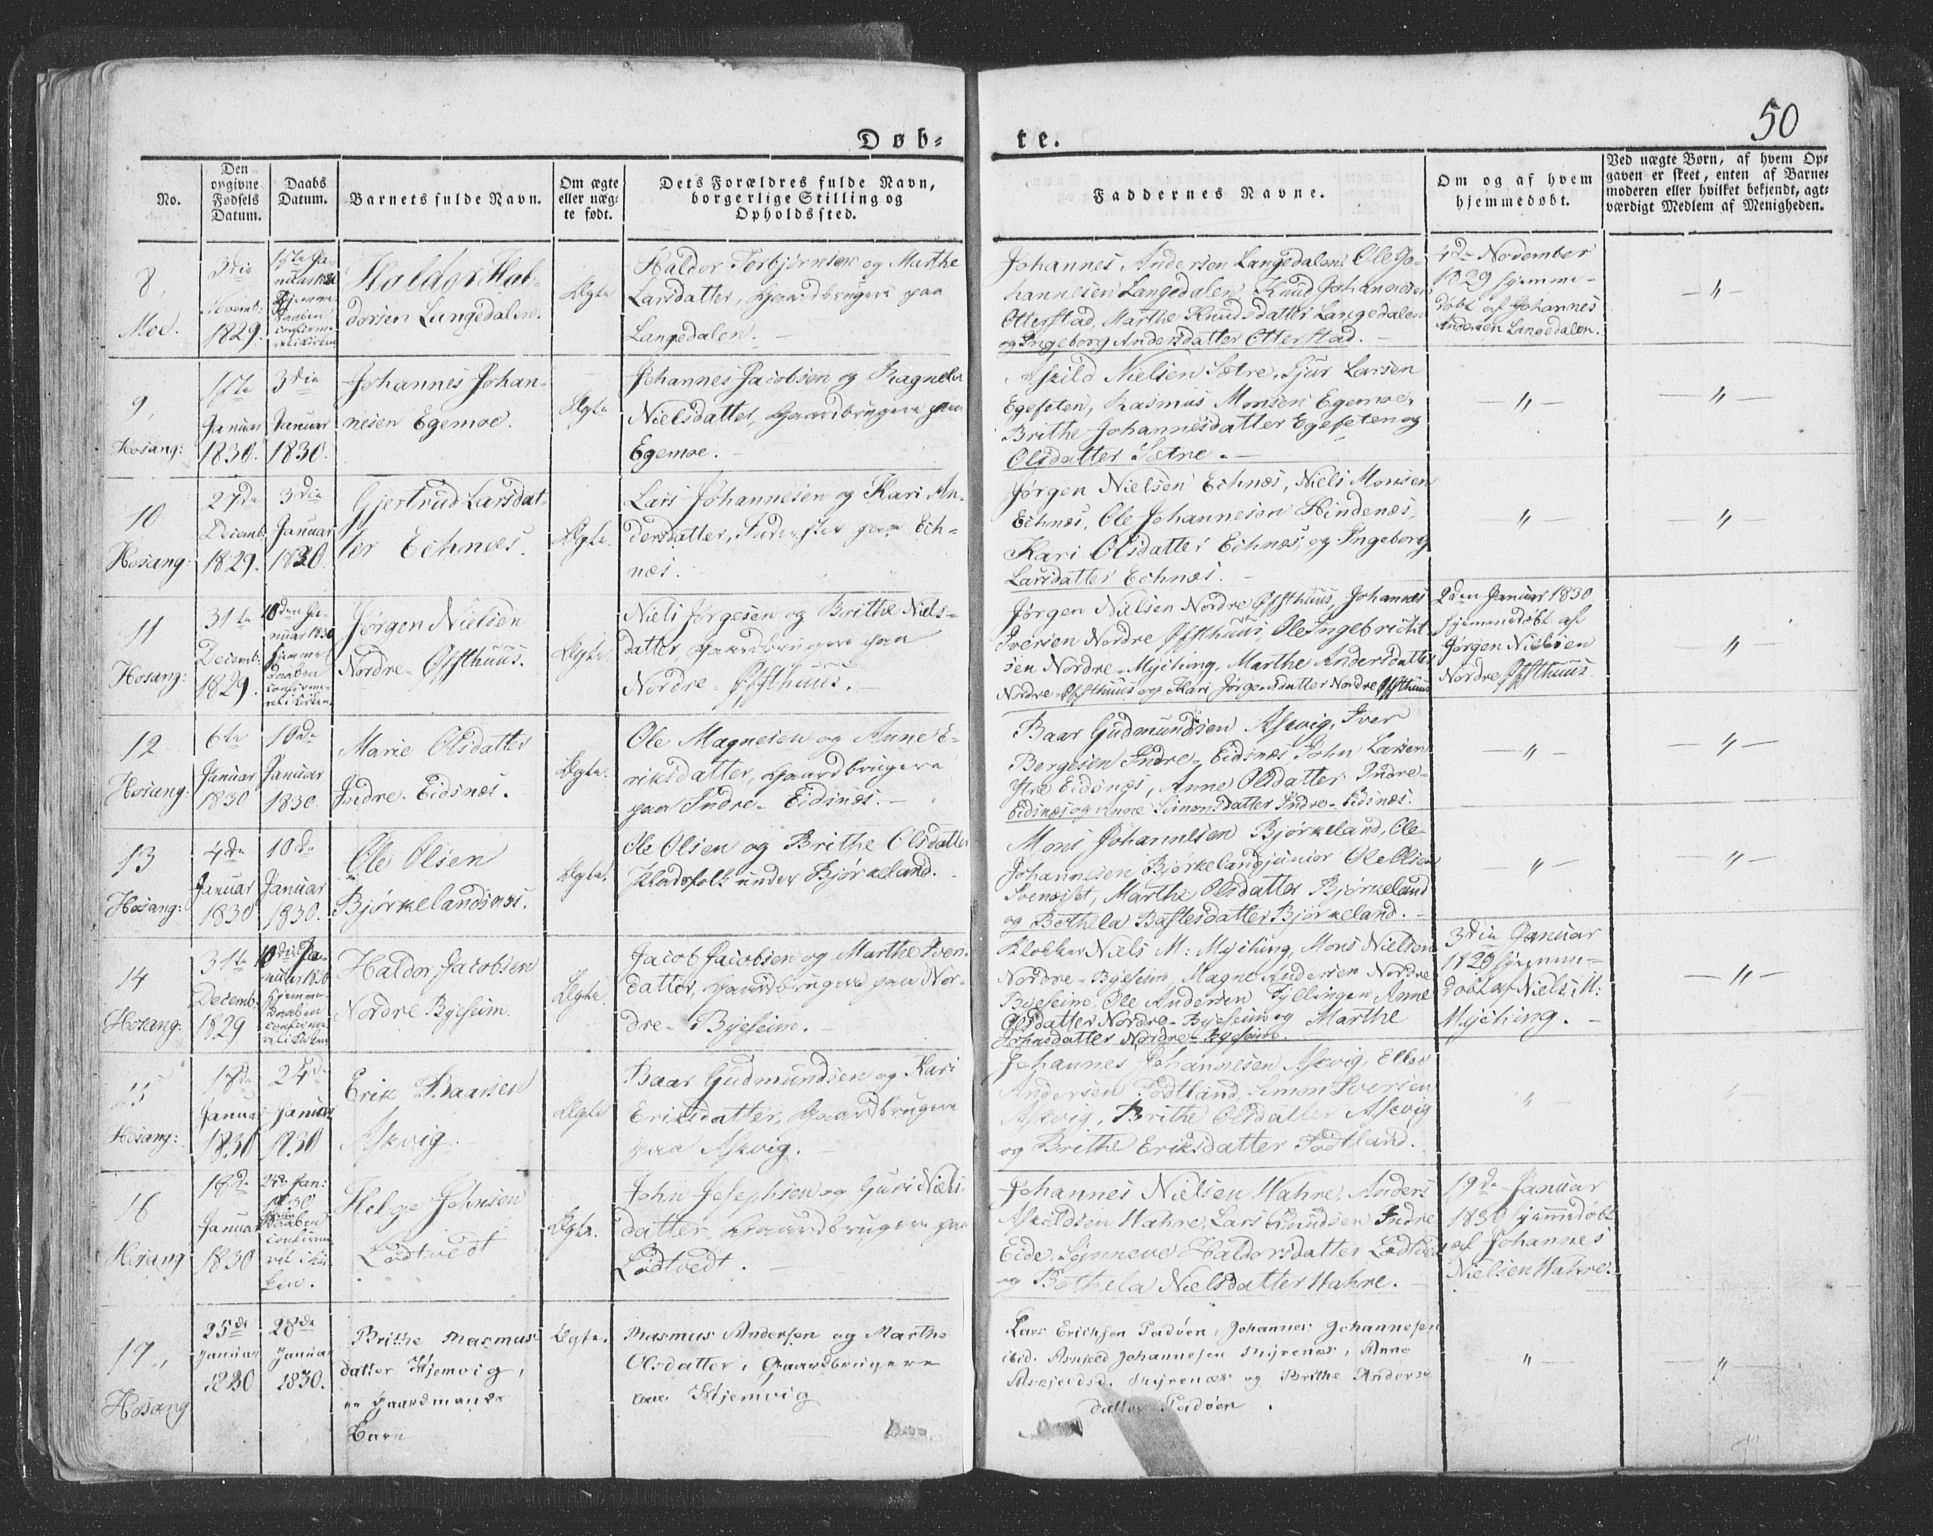 50
Døb-
te.
No.
Den opgivne Fødsels Datum.
Daabs Datum.
Barnets fulde Navn.
Om ægte eller uægte født.
Dets Forældres fulde Navn, borgerlige Stilling og Opholdssted.
Faddernes Navne.
Om og af hvem hjemmedøbt.
Ved uægte Børn, af hvem Opgaven er skeet, enten af Barnemoderen eller hvilket bekjendt, agtværdigt Medlem af Menigheden.
8,
Moe.
3die
Novemb:
1829.
Haldor Hal-
dorsen Langedalen.
Ægte
Haldor Torbjørnsen og Marthe
Larsdatter, Gaardbrugere paa
Langedalen. —
Johannes Andersen Langedalen, Ole Jo-
hannesen Langedalen, Knud Johannesen
Otterstad, Marthe Knudsdatter Langedalen
og Ingeborg Andersdatter Otterstad. —
4de November
1829 hjemme-
døbt af Johannes
Andersen Langedalen.
—〃—
9,
Hosang:
1ste
Januar
1830.
3die
Januar
1830.
Johannes Johan-
nesen Egemoe.
Ægte
Johannes Jacobsen og Ragnela
Nielsdatter, Gaardbrugere paa
Egemoe. —
Askild Nielsen Sætre, Sjur Larsen
Egeseten, Rasmus Monsen Egemoe,
Brithe Johannesdatter Egeseten og
Olsdatter Sætre. —
—〃—
—〃—
10
Hosang:
27de
Decemb:
1829.
3die
Januar
1830.
Gjertrud Larsdat-
ter Echnæs.
Ægte.
Lars Johannesen og Kari An-
dersdatter, paa Ech-
næs.
Jørgen Nielsen Echnæs, Niels Monsen
Echnæs, Ole Johannesen Hindenæs,
Kari Olsdatter Echnæs, og Ingeborg
Larsdatter Echnæs. —
〃—
〃
11
Hosang:
31te
Decemb:
1829.
10den Ja-
nuar 1830
hjemme-
daaben
confirme-
ret i Kirken
Jørgen Nielsen
Nordre-Øffthuus.
Ægte.
Niels Jørgesen og Brithe Niels-
datter Gaardbrugere paa
Nordre-Øffthuus. —
Jørgen Nielsen Nordre Øffthuus, Johannes
Iversen Nordre Øffthuus, Ole Ingebricht-
sen Nordre-Myching, Marthe Andersdatter
Nordre-Øffthuus og Kari Jørgensdatter Nordre Øffthuus
2den Januar 1830
hjemmedøbt af
Jørgen Nielsen
Nordre Øffthuus.
〃
12
Hosang:
6te
Januar
1830
10de
Januar
1830.
Marie Olsdatter
Indre-Eidsnæs.
Ægte.
Ole Magnesen og Anne E-
riksdatter, Gaardbrugere
paa Indre-Eidsnæs. —
Baar Gudmundsen Askvig, Iver
Bergesen Indre-Eidsnæs, John Larsen
Ytre Eidsnæs, Anne Olsdatter Indre-
Eidsnæs og Anne Simonsdatter Indre-Eidsnæs.
—〃—
—〃—
13
Hosang:
4de
Januar
1830
10de
Januar
1830.
Ole Olsen
Bjørkelandsnæs.
Ægte.
Ole Olsen og Brithe Olsdatter
Pladsfolk under Bjørkeland. —
Mons Johannesen Bjørkeland, Ole
Johannesen Bjørkeland junior, Ole Olsen
Svenæset, Marthe Olsdatter Bjørkeland
og Bothela Baftesdatter Bjørkeland. —
—〃—
—〃—
14
Hosang:
31te
Decemb:
1829
10de Ja-
nuar 1830
hjemme-
daaben
confirme-
ret i Kirken
Haldor Jacobsen
Nordre Byeseim.
Ægte.
Jacob Jacobsen og Marthe Iven-
datter, Gaardbrugere paa Nor-
dre-Byeseim. —
Klokker Niels M: Myching, Mons Nielsen
Nordre-Byeseim, Magne Andersen Nordre
Byeseim, Ole Andersen Fyllingen, Anne
Olsdatter Nordre-Byeseim og Marthe
Johnsdatter Nordre-Byeseim.
3die Januar
1829 hjemme-
døbt af Niels M:
Myching. —
—〃—
15
Hosang:
18de
Januar
1830
24de
Januar
1830
Erik Baarsen
Askvig.
Ægte
Baar Gudmundsen og Kari
Eriksdatter, Gaardbrugere
paa Askvig. —
Johannes Johannesen Askvig, Eller
Andersen Fodtland, Simon Iversen
Askvig, Brithe Olsdatter Askvig
og Brithe Eriksdatter Fodtland.
〃—
〃
16
Hosang
18de
Januar
1830
24de Jan:
1830
daaben
confirme-
ret i Kir-
ken.
Helge Johnsen
Lodtvedt
Ægte.
John Josephsen og Guri Niels-
datter, Gaardbrugere paa
Lodtvedt. —
Johannes Nielsen Hahre, Anders
Askildsen Hahre, Lars Knudsen Indre
Eide, Synneve Haldorsdatter Lodtvedt
og Bothela Nielsdatter Hahre. —
19de Januar
1830 hjemmedøbt
af Johannes
Nielsen Hahre.
17,
Hosang
25de
Januar
1830
28de
Januar
1830.
Brithe Rasmus
datter Hjemvig,
en Gaardmands
Barn
Ægte.
Rasmus Andersen og Marthe
Olsdatter, Gaardbrugere
paa Hjemvig
Lars Erichsen Tadøen, Johannes Johannesen
ibid. Arnfeed Johannesen Myrenæs, Anne
Arnfeedsd. Myrenæs og Brithe Anders
datter Tadøen.
〃—
—〃—